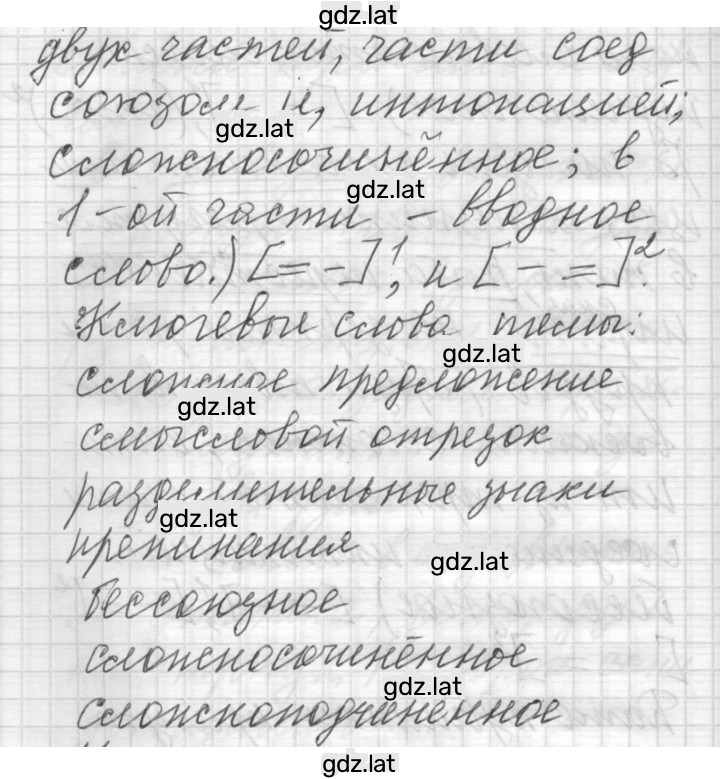 gdz.lat
двух частей, части соед
союзом и, интонацией;
gdz.lat
сложносочинённое; в
gdz.lat
1-ой части - вводное
слово.) [= -]¹, и [- =]².
Ключевые слова темы:
gdz.lat
сложное предложение
gdz.lat
смысловой отрезок
разделительные знаки
gdz.lat
препинания
gdz.lat
бессоюзное
сложносочинённое
gdz.lat
сложноподчиненное
gdz.lat